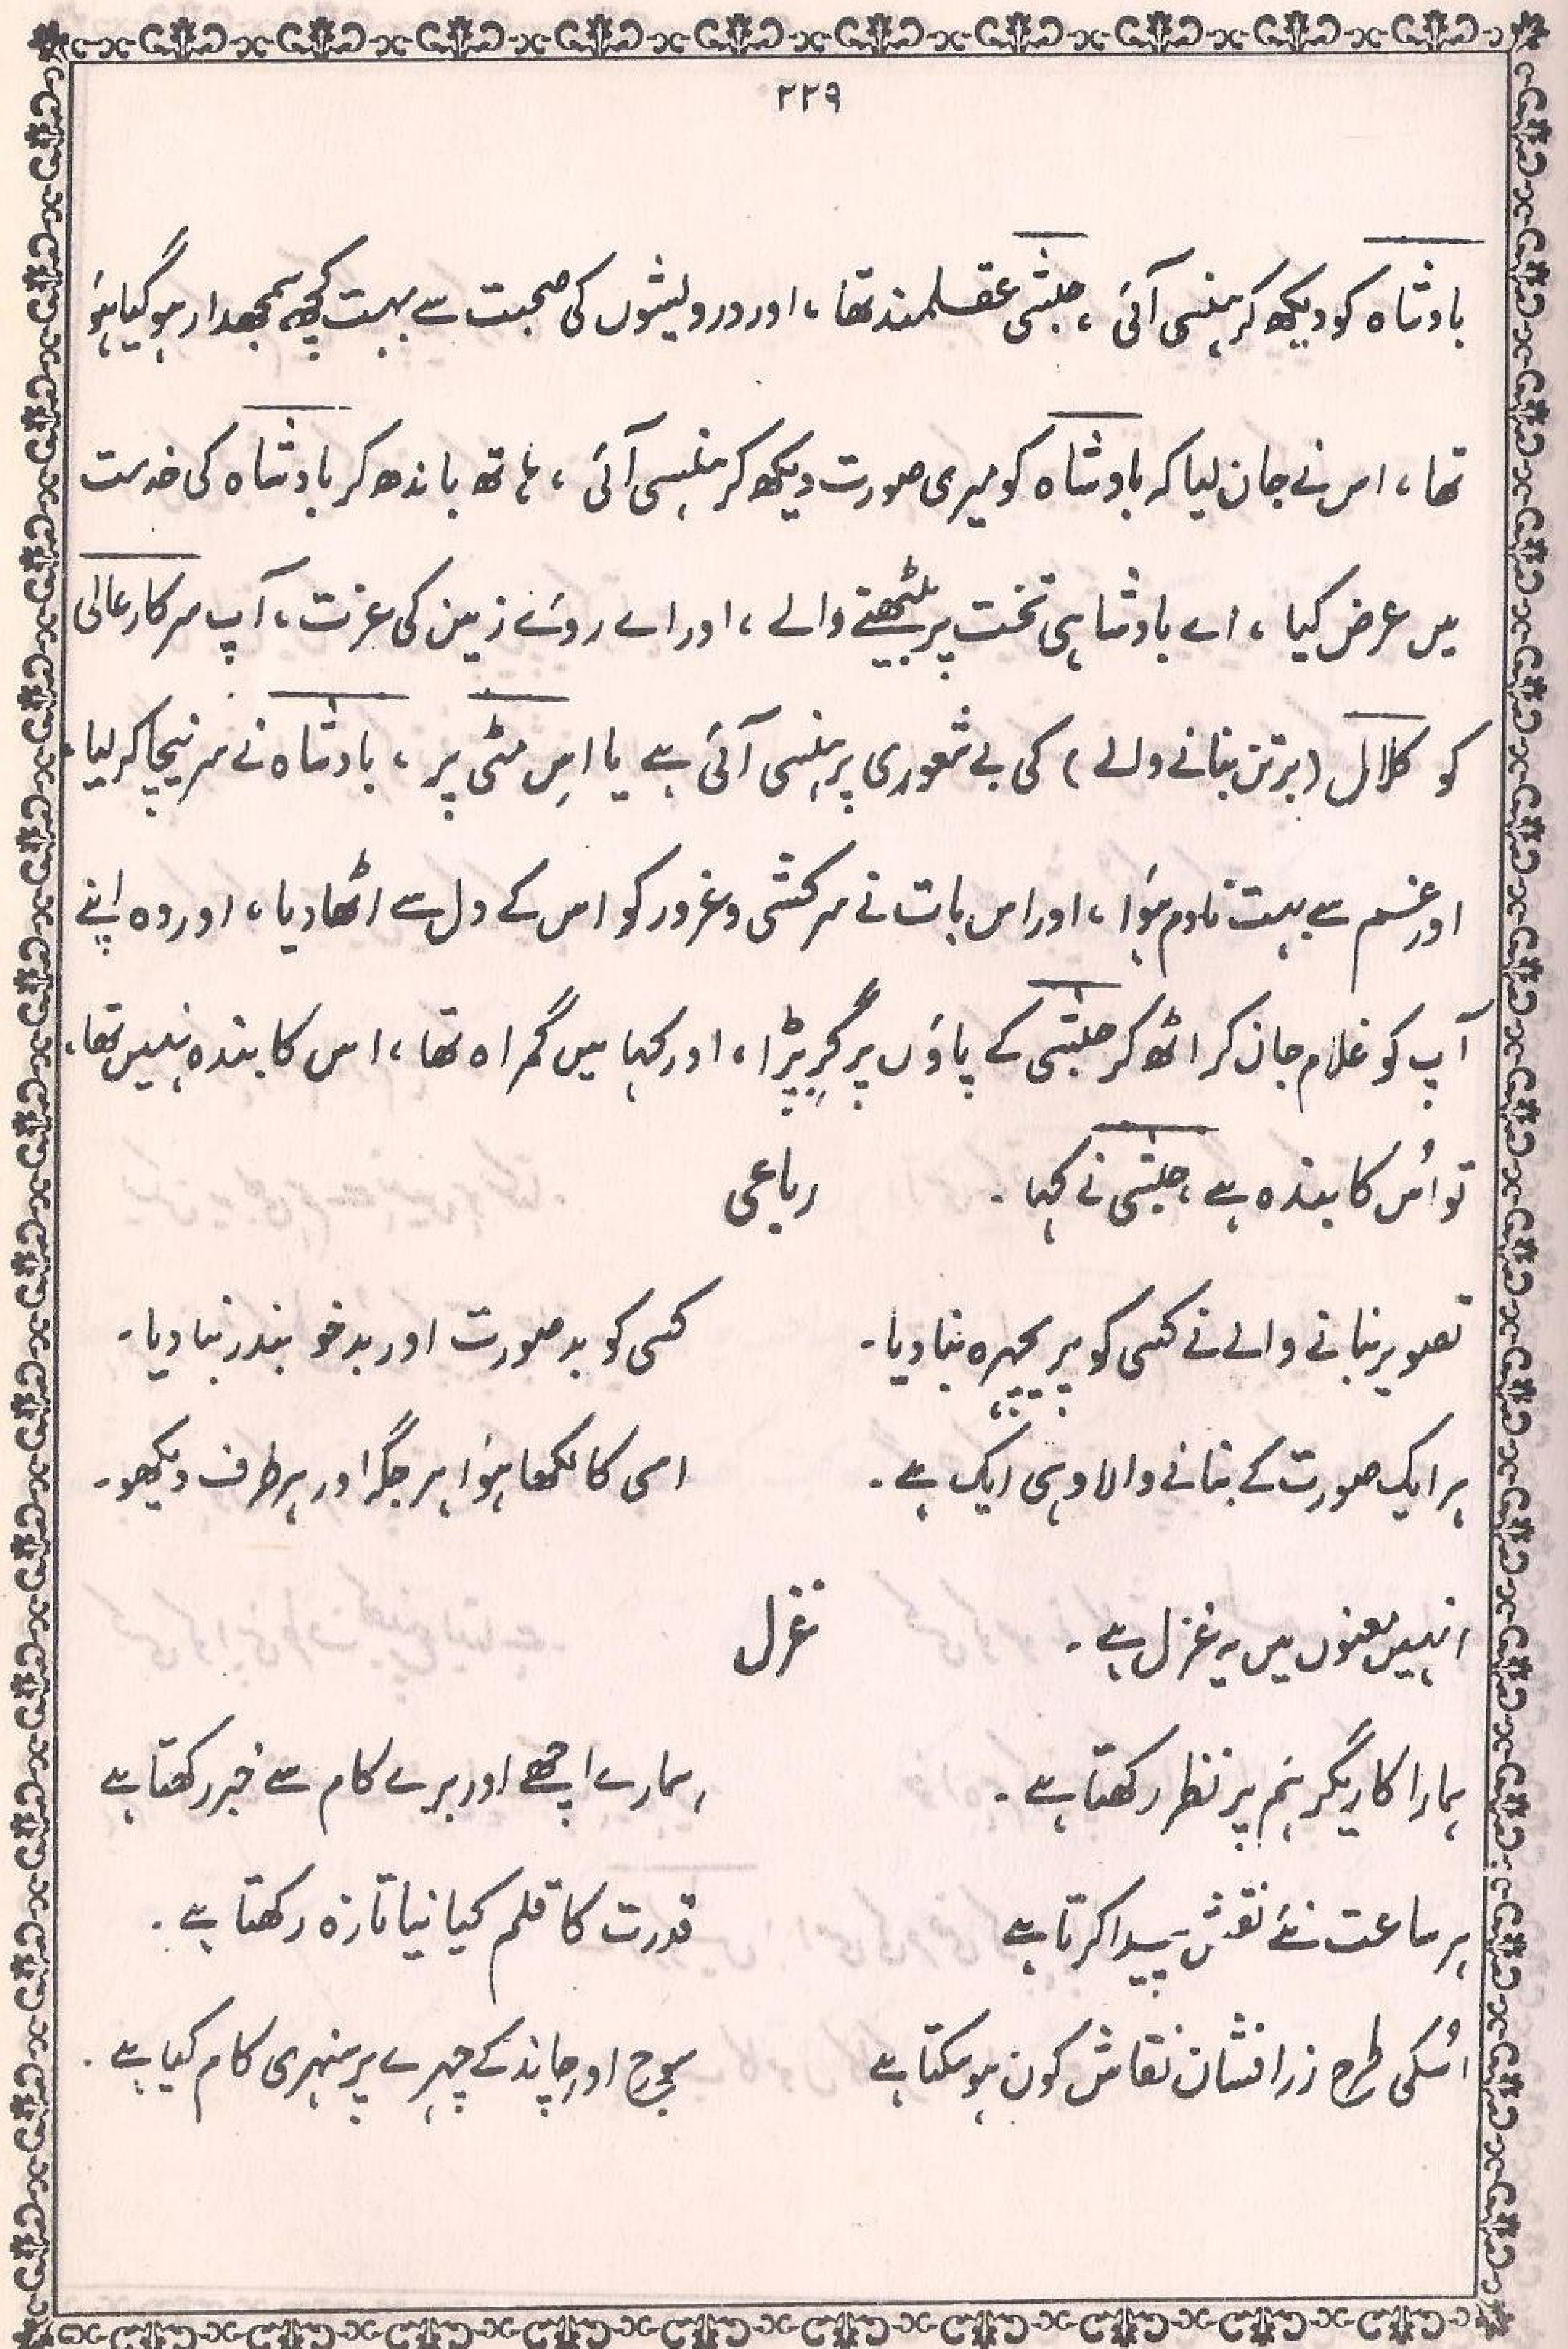 ۲۲۹
بادشاہ کو دیکھ کر ہنسی آئی ، حبشی عقلمند تھا ، اور درویشوں کی صحبت سے بہت کچھ سمجھدار ہو گیا ہؤا
تھا ، اس نے جان لیا کہ بادشاہ کو میری صورت دیکھ کر ہنسی آئی ، ہاتھ باندھ کر بادشاہ کی خدمت
میں عرض کیا ، اے بادشاہی تخت پر بیٹھنے والے ، اور اے روئے زمین کی عزت ، آپ سرکار عالی
کو کلال (برتن بنانے والے) کی بے شعوری پر ہنسی آئی ہے یا اِس مٹی پر ، بادشاہ نے سر نیچا کر لیا ،
اور غم سے بہت نادم ہؤا ، اور اس بات نے سرکشی و غرور کو اس کے دل سے اٹھا دیا ، اور وہ اپنے
آپ کو غلام جان کر اٹھ کر حبشی کے پاؤں پر گر پڑا ، اور کہا میں گمراہ تھا ، اس کا بندہ نہیں تھا ،
تو اُس کا بندہ ہے ، حبشی نے کہا ۔ رباعی
تصویر بنانے والے نے کسی کو پریچہرہ بنا دیا ۔ کسی کو بد صورت اور بدخو بندر بنا دیا ۔
ہر ایک صورت کے بنانے والا وہی ایک ہے ۔ اسی کا لکھا ہؤا ہر جگہ اور ہر طرف دیکھو ۔
انہیں معنوں میں یہ غزل ہے ۔ غزل
ہمارا کاریگر ہم پر نظر رکھتا ہے ۔ ہمارے اچھے اور برے کام سے خبر رکھتا ہے
ہر ساعت نئے نقش پیدا کرتا ہے قدرت کا قلم کیا نیا تازہ رکھتا ہے ۔
اُسکی طرح زرافشان نقاش کون ہو سکتا ہے سورج اور چاند کے چہرے پر سنہری کام کیا ہے ۔